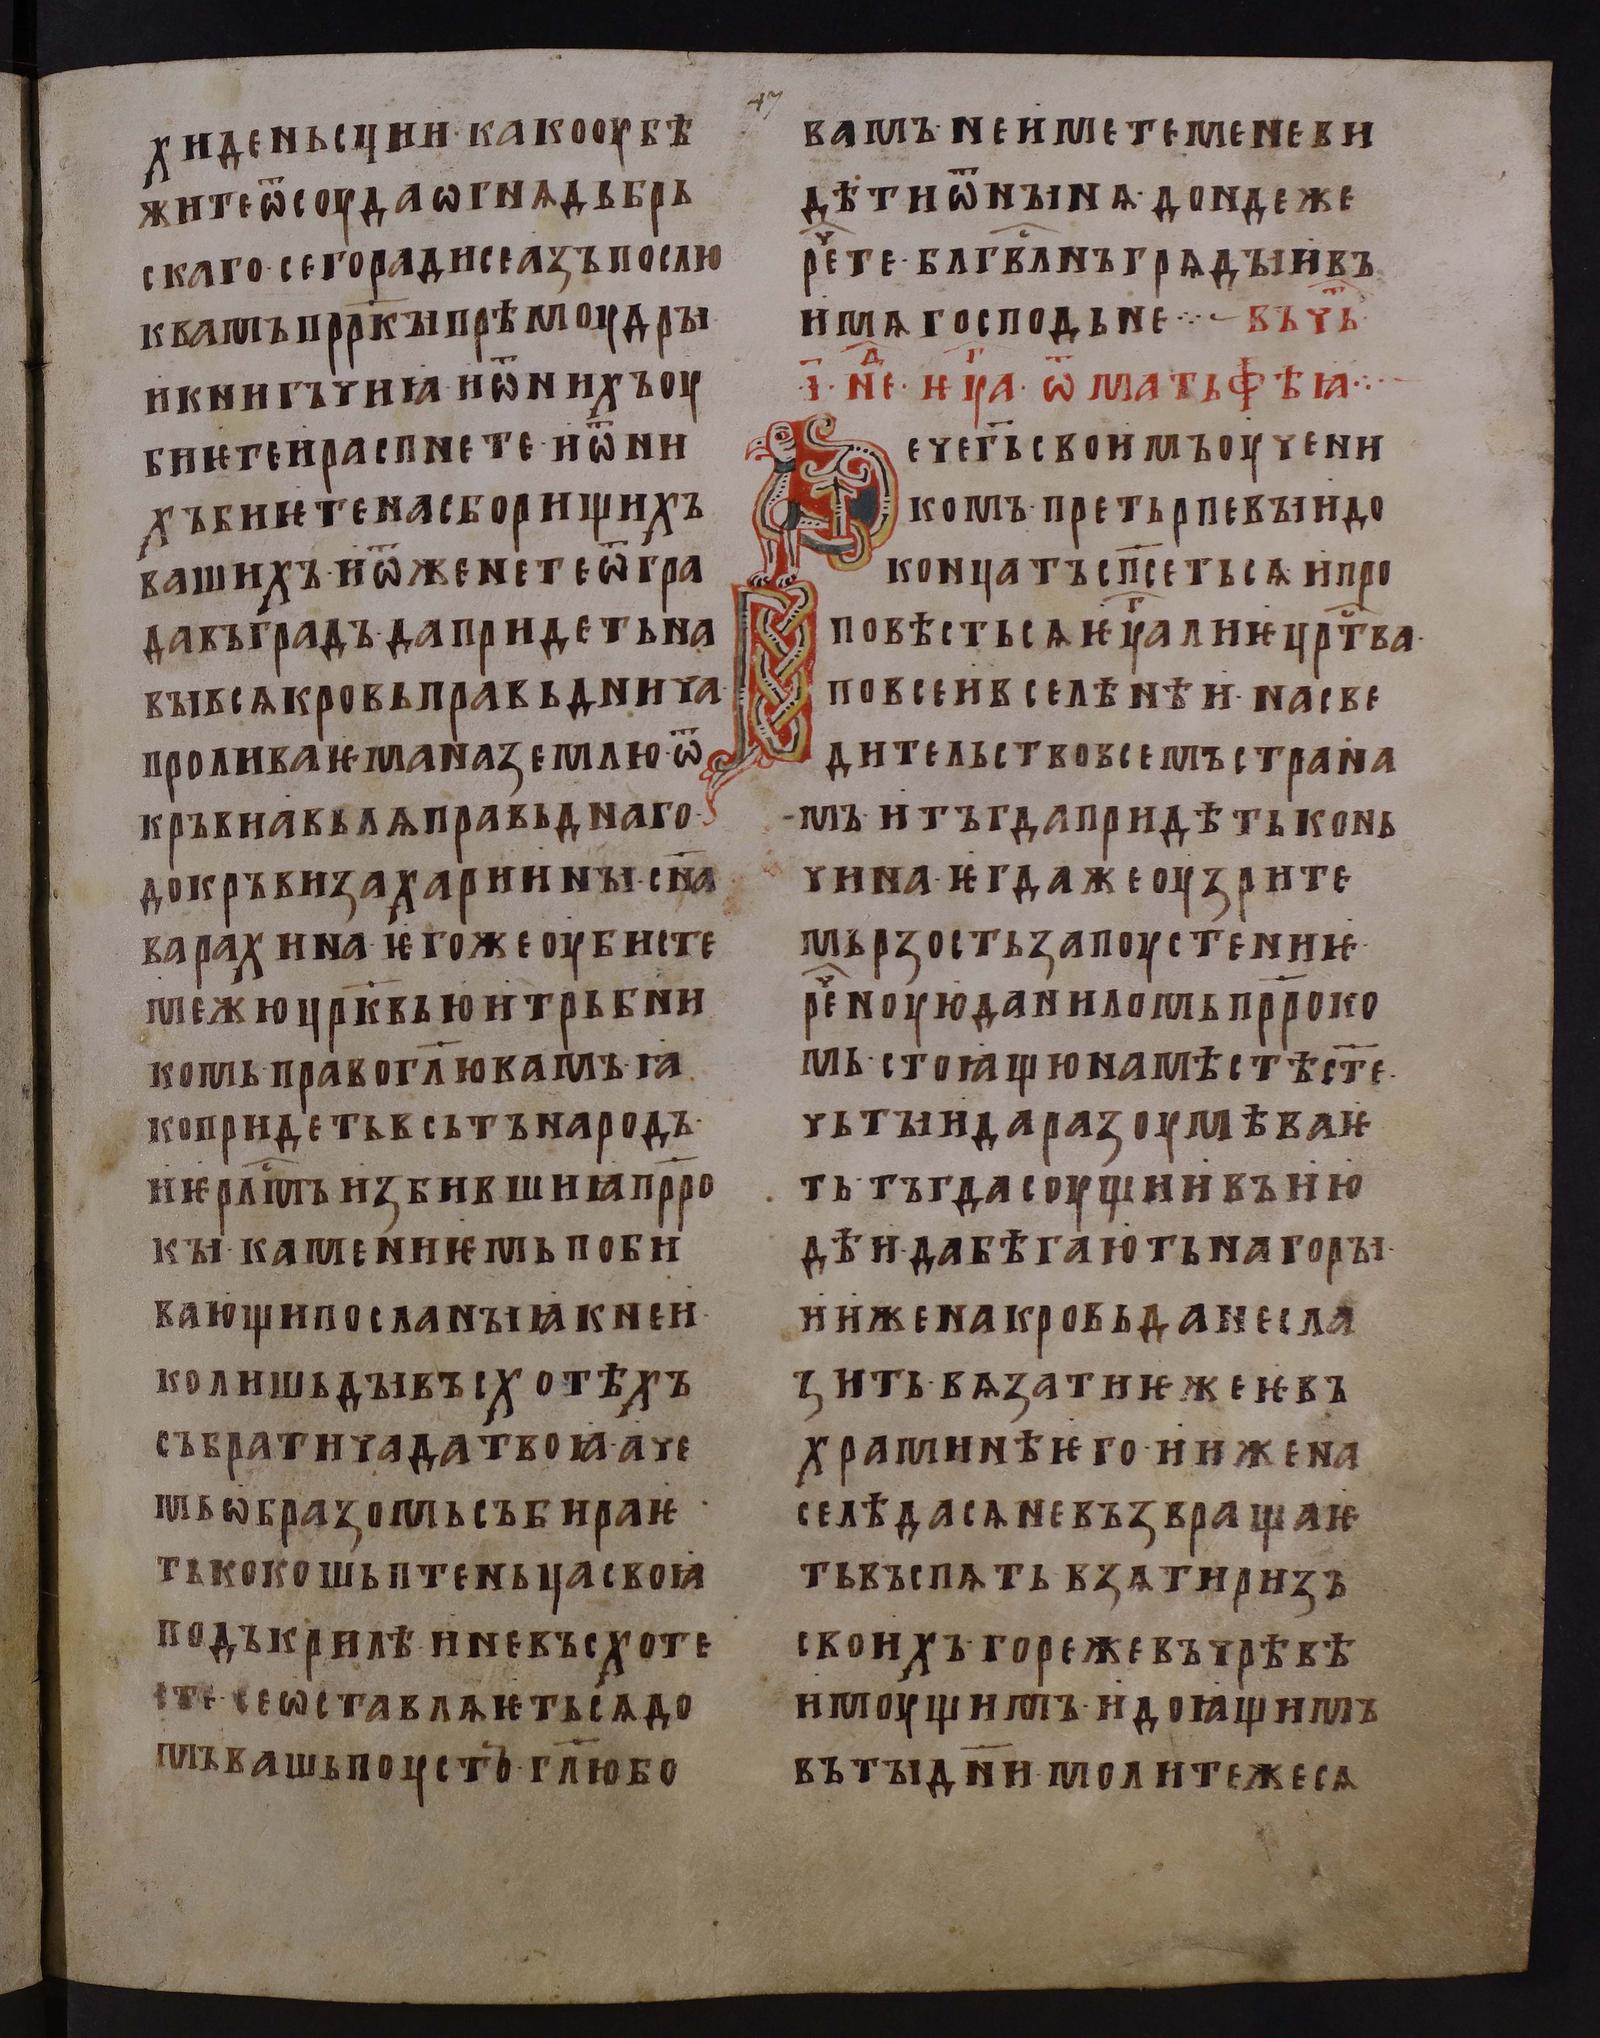 47
хиденьсции· какооубѣ
житеѿсоудаѡгнѧдьбрь
скаго· сегорадисеазъпослю
квамъпррк҃ыпрѣмоудры
икнигъчиꙗ· иѿнихъоу
биѥтеираспнете· иѿни
хъбиѥтенасборищихъ
вашихъ· иѿженетеѿгра
давъградъ· дапридетьна
вывсѧкровьправьднича
проливаѥманаземлю· ѿ
кръвиавьлѧправьднаго·
докръвизахариины· сн҃а
варахина· ѥгожеоубисте
межюцрк҃вьюитрьбни
комь· правогл҃ювамъ· ꙗ
копридетьвсьтънародъ·
иѥрлⷭ҇мъизбившиꙗпрр҃о
кы· камениѥмьпоби
вающипосланыꙗкнеи·
колишьдывъсхотѣхъ
събратичадатвоꙗ· аче
мьѡбразомьсъбираѥ
тькокошьптеньцасвоꙗ
подъкрилѣ· иневъсхоте
сте· сеѡставлѧѥтьсѧдо
мъвашьпоустъ· гл҃юбо
вамъ· неиметеменеви
дѣтиѿнынѧ· дондеже
рⷱ҇ете· блгⷭ҇влнъградыивъ
имѧгосподьне· въчⷮь·
·і҃· неⷣ· ѥуⷢ҇а· ѿ матьфѣꙗ·
Речегь҃своимъоучени
комъ· претьрпевыидо
концатъсп҃сетьсѧ· ипро
повѣстьсѧѥуⷢ҇алиѥцрⷭ҇тва·
повсеивселѣнѣи· насве
дительствовсемъстрана
мъ· итъгдапридѣтьконь
чина· ѥгдажеоузрите
мьрзостьзапоустениѥ·
рⷱ҇еноуюданиломьпрр҃око
мь· стоꙗщюнамѣстѣст҃е·
чьтыидаразоумѣваѥ
ть· тъгдасоущиивъию
дѣи· дабѣгаютьнагоры·
иижена кровьданесла
зить· вѧзатиѥжеѥвъ
храминѣѥго· иижена
селѣдасѧневъзвращаѥ
тьвъспѧть· взѧтиризъ
своихъ· горежевъчрѣвѣ
имоущимъ· идоꙗщимъ
вътыдн҃и· молитежесѧ